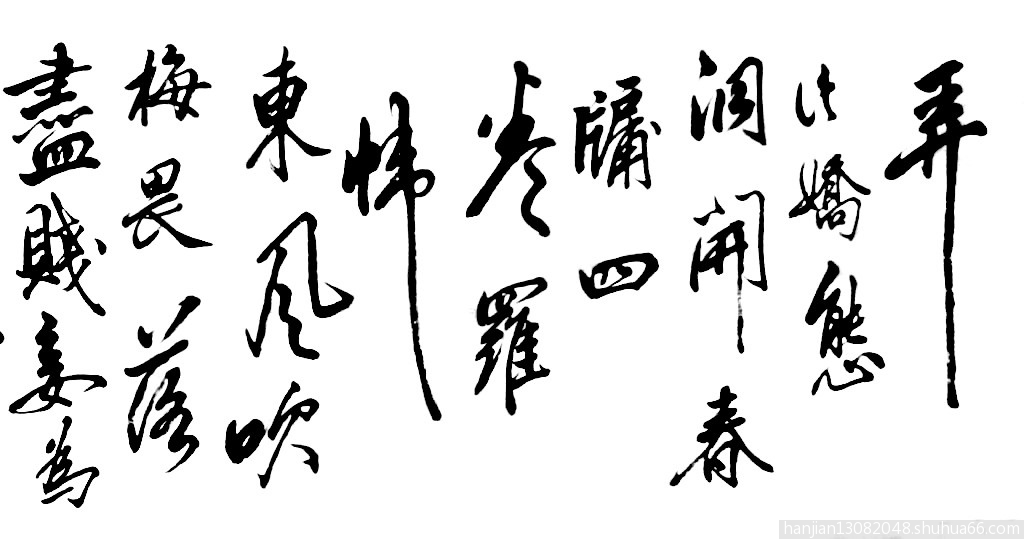 弄
此嬌態
洞開春
牖四
卷羅
幃
東風吹
梅畏落
盡賤妾為
hanjian13082048.shuhua66.com